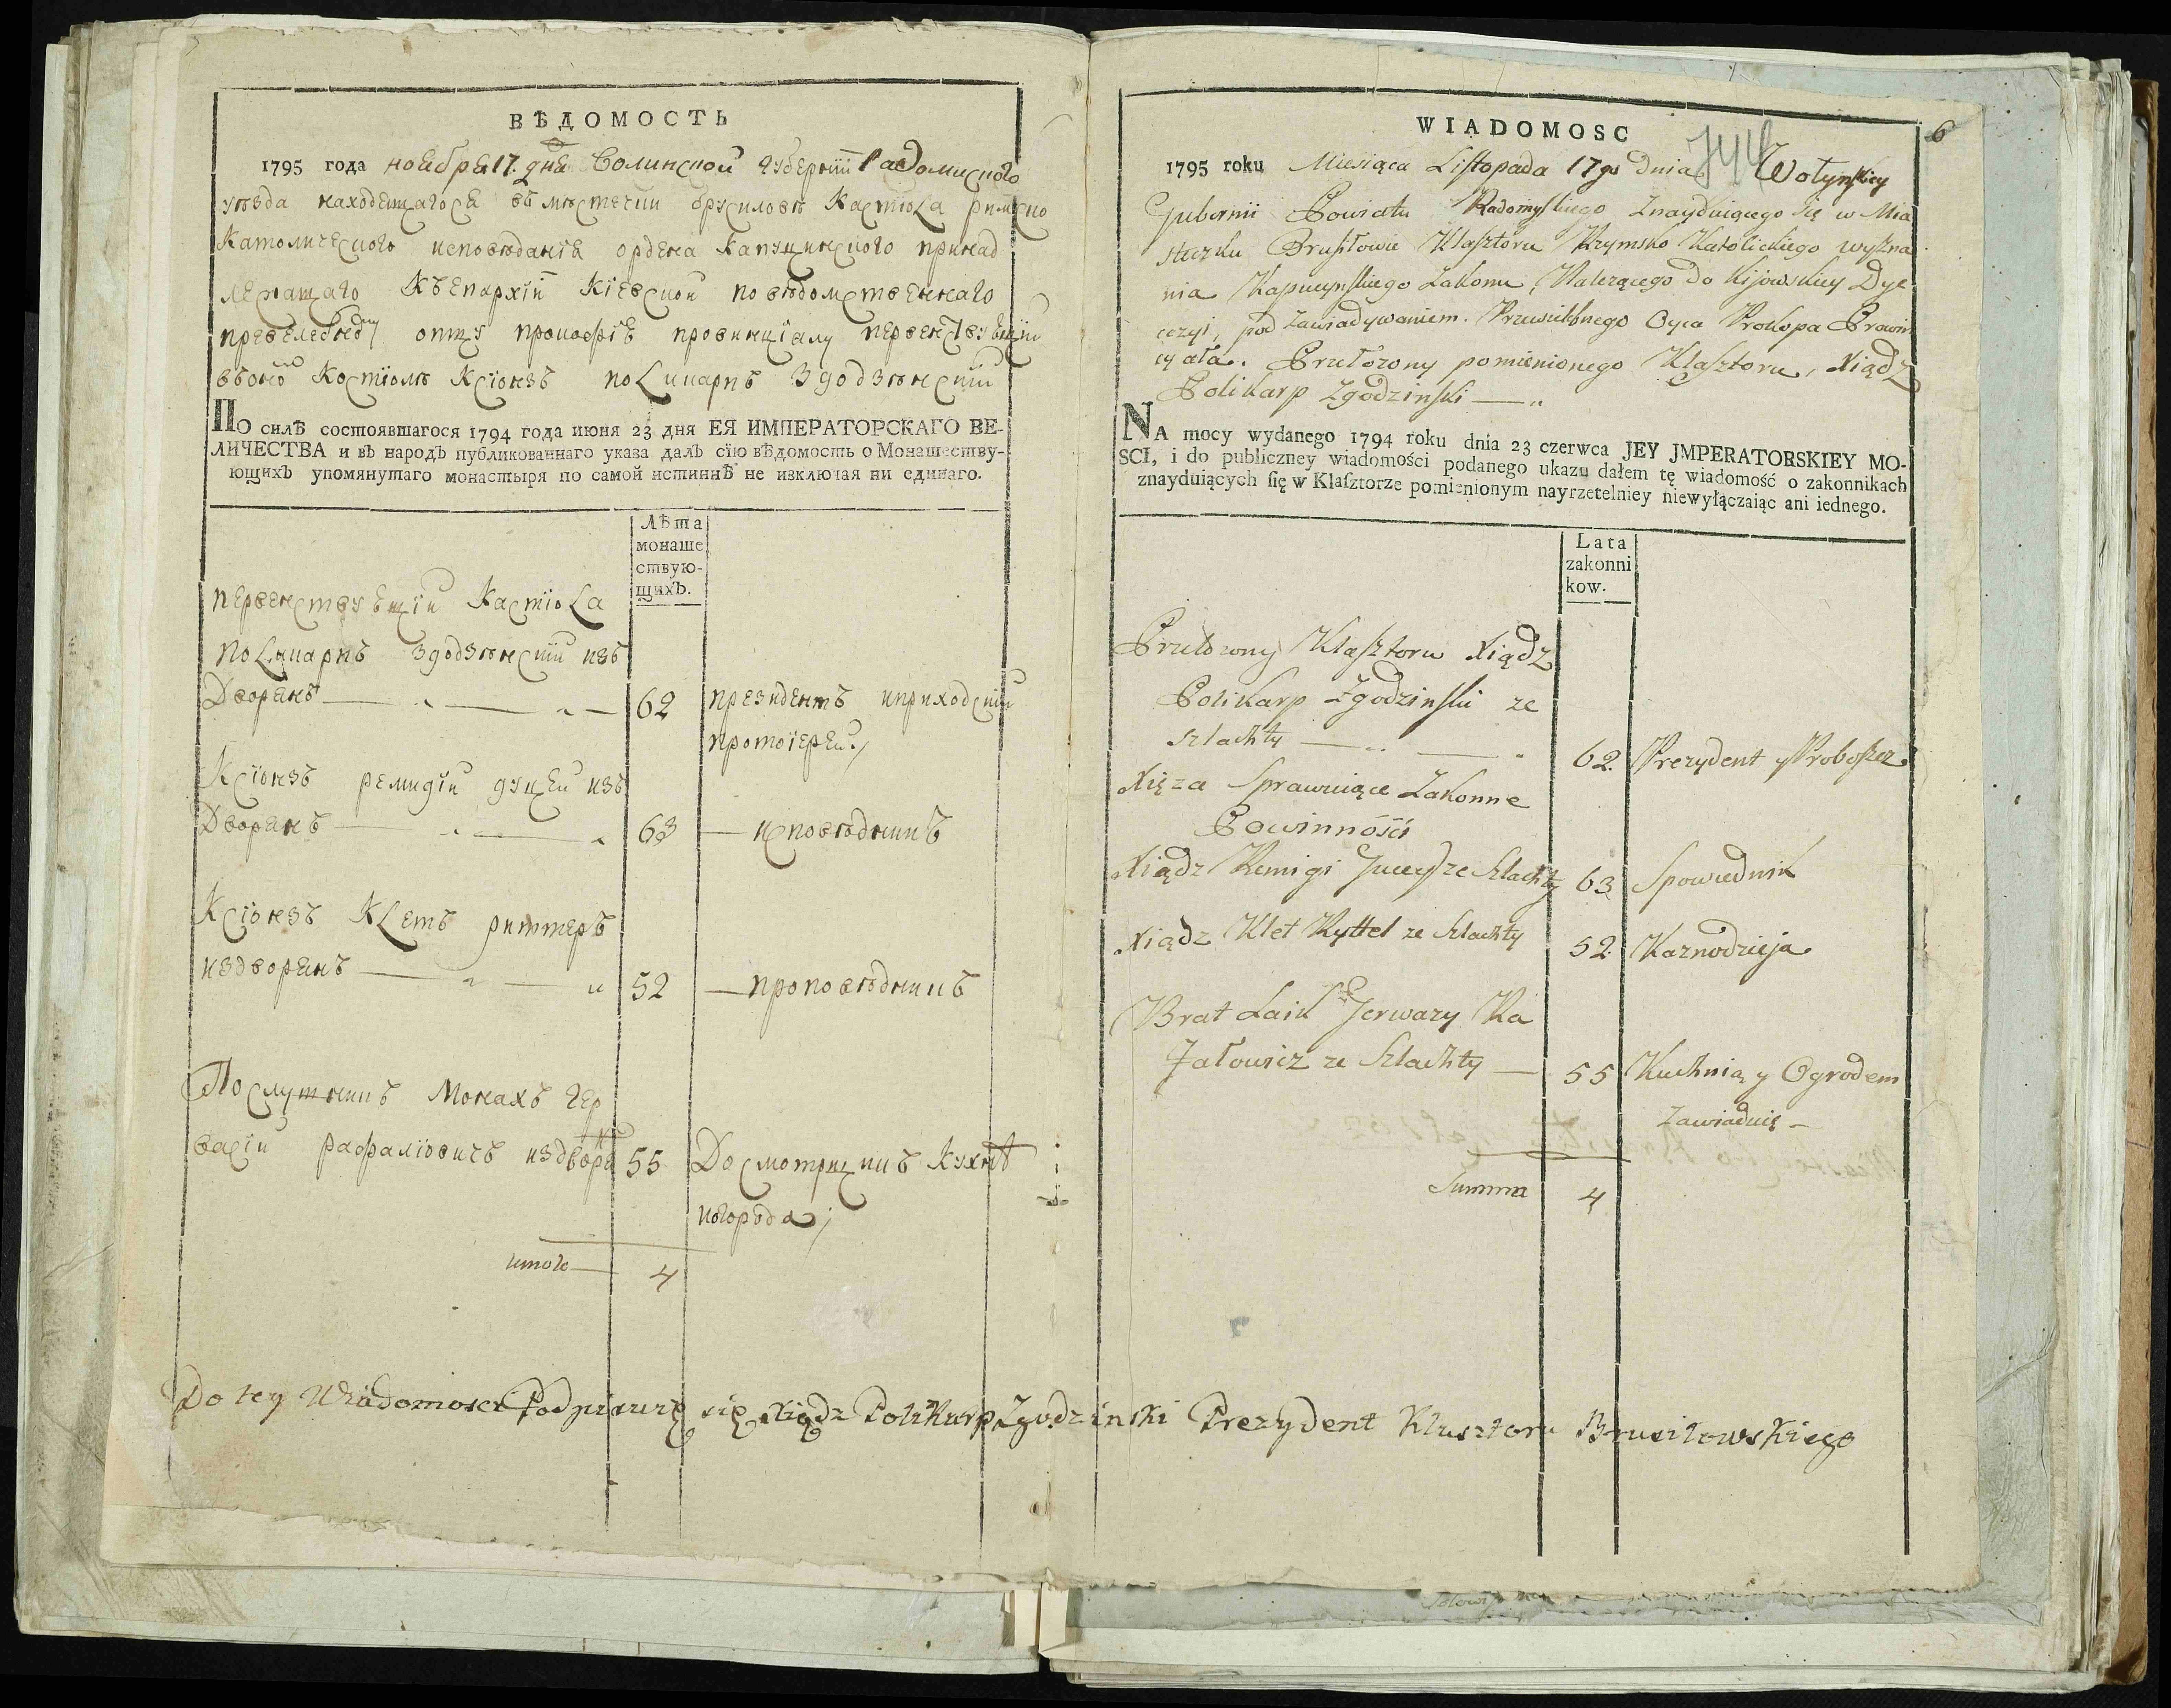 ВѢДОМОСТЬ
1795 года ноебря 17. дня Волинской губернїи Радомиского
уѣзда находещагося въ мѣстечки брусиловѣ Кастіола римско
Католического исповѣданія ордена капуцинского принад
лежащаго Къ Епархїи Кіевской повѣдомственнаго
превелебному отцу прокофіѣ провинціалу первенствующїи
въономъ Костїолѣ Ксїонзъ поликарпъ Згодзѣнскїй
По силѣ состоявшагося 1794 года июня 23 дня ЕЯ ИМПЕРАТОРСКАГО ВЕ-
ЛИЧЕСТВА и въ народъ публикованнаго указа далъ сїю вѣдомость о Монашеству-
ющихъ упомянутаго монастыря по самой истиннѣ не изключая ни единаго.
Лѣта
монаше
ствую-
щихъ.
первенствующїи Кастїола
поликарпъ Згодзѣнскїи изъ
Дворянъ 62 президентъ иприходскїи
протоїереи
Ксїонзъ ремигїи Дворянъ 63 исповѣдникъ
Ксїонзъ Клетъ риттеръ
издворянъ 52 проповѣдникъ
Послушникъ Монахъ гер
васїи рафаліовичъ издворя 55 Досмотрщикъ кухнѣ
иогорода
итого 4
WIADOMOSC
6
1795 roku Miesiąca Listopada 17go dnia Wołynskiey
Gubernii Powiatu Radomyskiego Znayduiącego się w Mia
steczku Brusiłowie Klasztoru Rzymsko Katolickiego wyzna
nia Kapucynskiego Zakonu, Nalezącego do Kijowskiey Dye
cezyi, pod Zawiadywaniem. Przewielebnego Oyca Prokopa Prowin
cyała. Przełozony pomienionego Klasztoru, Xiądz
Polikarp Zgodzinski
NA mocy wydanego 1794 roku dnia 23 czerwca JEY JMPERATORSKIEY MO-
SCI, i do publiczney wiadomości podanego ukazu dałem tę wiadomość o zakonnikach
znayduiących się w Klasztorze pomienionym nayrzetelniey niewyłączaiąc ani iednego.
Lata
zakonni
kow.
Przełozony Klasztoru Xiądz
Polikarp Zgodzinski ze
szlachty 62. Prezydent y Proboszcz
Xięza Sprawuiące Zakonne
Powinności
Xiądz Remigi ze Szlachty 63 Spowiednik
Xiądz Klet Ryttel ze Szlachty 52 Kaznodzieja
Brat Laik Jerwazy Ra
fałowicz ze Szlachty 55 Kuchnią y Ogrodem
Zawiaduię
Summa 4
Do tey Wiadomosci Podpisuię się Xiądz Polikarp Zgodzinski Prezydent Klasztoru Brusiłowskiego